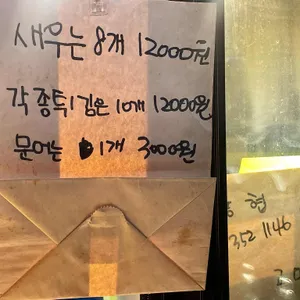 새우는 8개 12000원
각종튀김은 10개 12000원
문어는 1개 3000원
형
352 1146